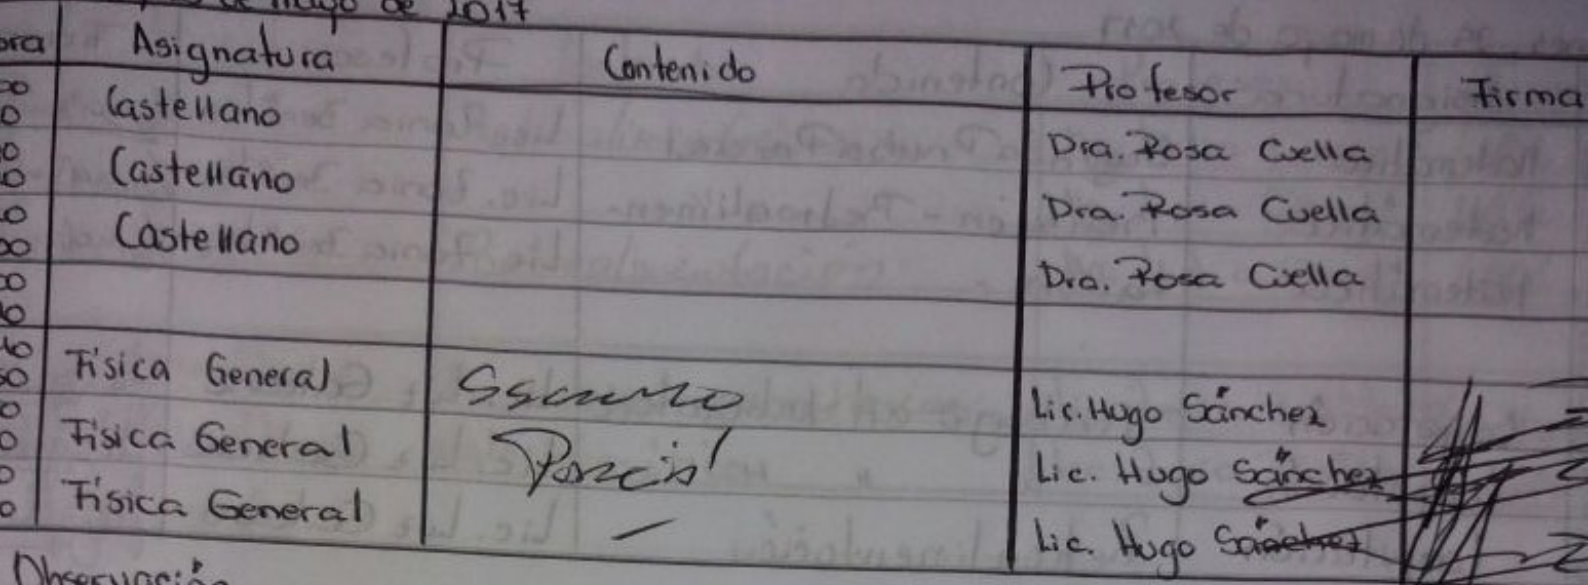 de mayo de 2017
ora Asignatura Contenido Profesor Firma
Castellano Dra. Rosa Cuella
Castellano Dra. Rosa Cuella
Castellano Dra. Rosa Cuella
Física General Lic. Hugo Sánchez
Física General Parcial Lic. Hugo Sánchez
Física General — Lic. Hugo Sánchez
Observación